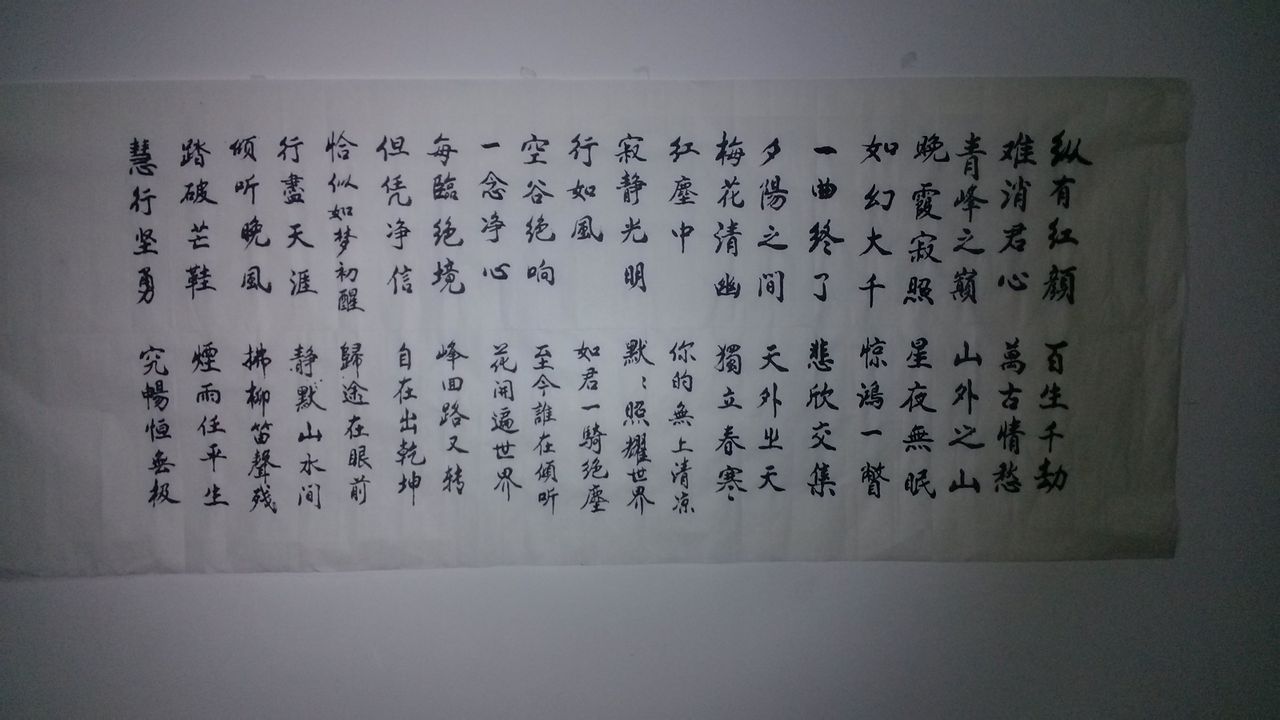 纵有红颜 百生千劫
难消君心 萬古情愁
青峰之巔 山外之山
晚霞寂照 星夜無眠
如幻大千 惊鸿一瞥
一曲终了 悲欣交集
夕陽之间 天外之天
梅花清幽 獨立春寒
红塵中 你的無上清凉
寂静光明 默:照耀世界
行如風 如君一騎绝塵
空谷绝响 至今誰在傾听
一念净心 花開遍世界
每臨绝境 峰回路又转
但凭净信 自在出乾坤
恰似如梦初醒 歸途在眼前
行盡天涯 静默山水间
倾听晚風 拂柳笛聲残
踏破芒鞋 煙雨任平生
慧行坚勇 究暢恒無极